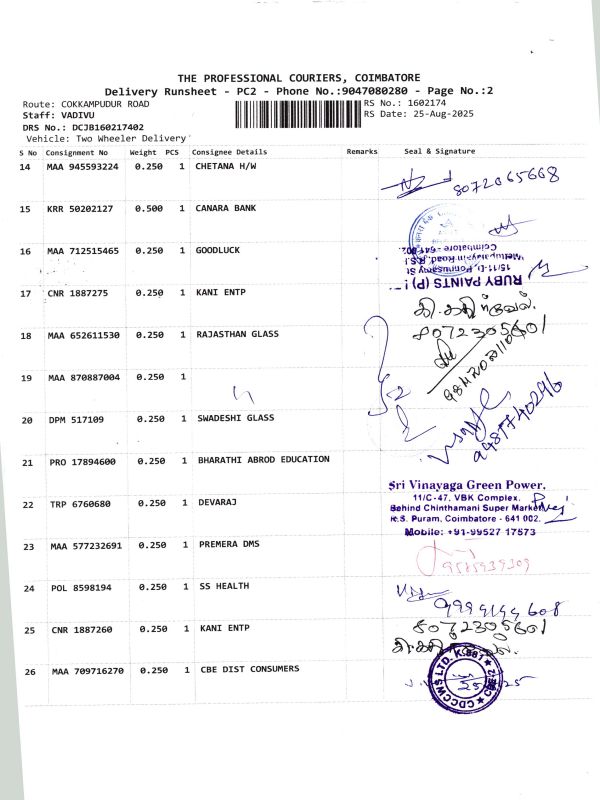 THE PROFESSIONAL COURIERS, COIMBATORE
Delivery Runsheet - PC2 - Phone No.:9047080280 - Page No.:2
Route: COKKAMPUDUR ROAD RS No.: 1602174
Staff: VADIVU RS Date: 25-Aug-2025
DRS No.: DCJB160217402
Vehicle: Two Wheeler Delivery
S No Consignment No Weight PCS Consignee Details Remarks Seal & Signature
14 MAA 945593224 0.250 1 CHETANA H/W
8072065668
15 KRR 50202127 0.500 1 CANARA BANK
16 MAA 712515465 0.250 1 GOODLUCK
RUBY PAINTS (P)
Coimbatore - 641 002.
17 CNR 1887275 0.250 1 KANI ENTP
8072305601
18 MAA 652611530 0.250 1 RAJASTHAN GLASS
19 MAA 870887004 0.250 1
20 DPM 517109 0.250 1 SWADESHI GLASS
21 PRO 17894600 0.250 1 BHARATHI ABROD EDUCATION
Sri Vinayaga Green Power,
11/C-47, VBK Complex,
Behind Chinthamani Super Market
R.S. Puram, Coimbatore - 641 002.
Mobile: +91-99527 17573
22 TRP 6760680 0.250 1 DEVARAJ
23 MAA 577232691 0.250 1 PREMERA DMS
24 POL 8598194 0.250 1 SS HEALTH
25 CNR 1887260 0.250 1 KANI ENTP
8072305601
26 MAA 709716270 0.250 1 CBE DIST CONSUMERS